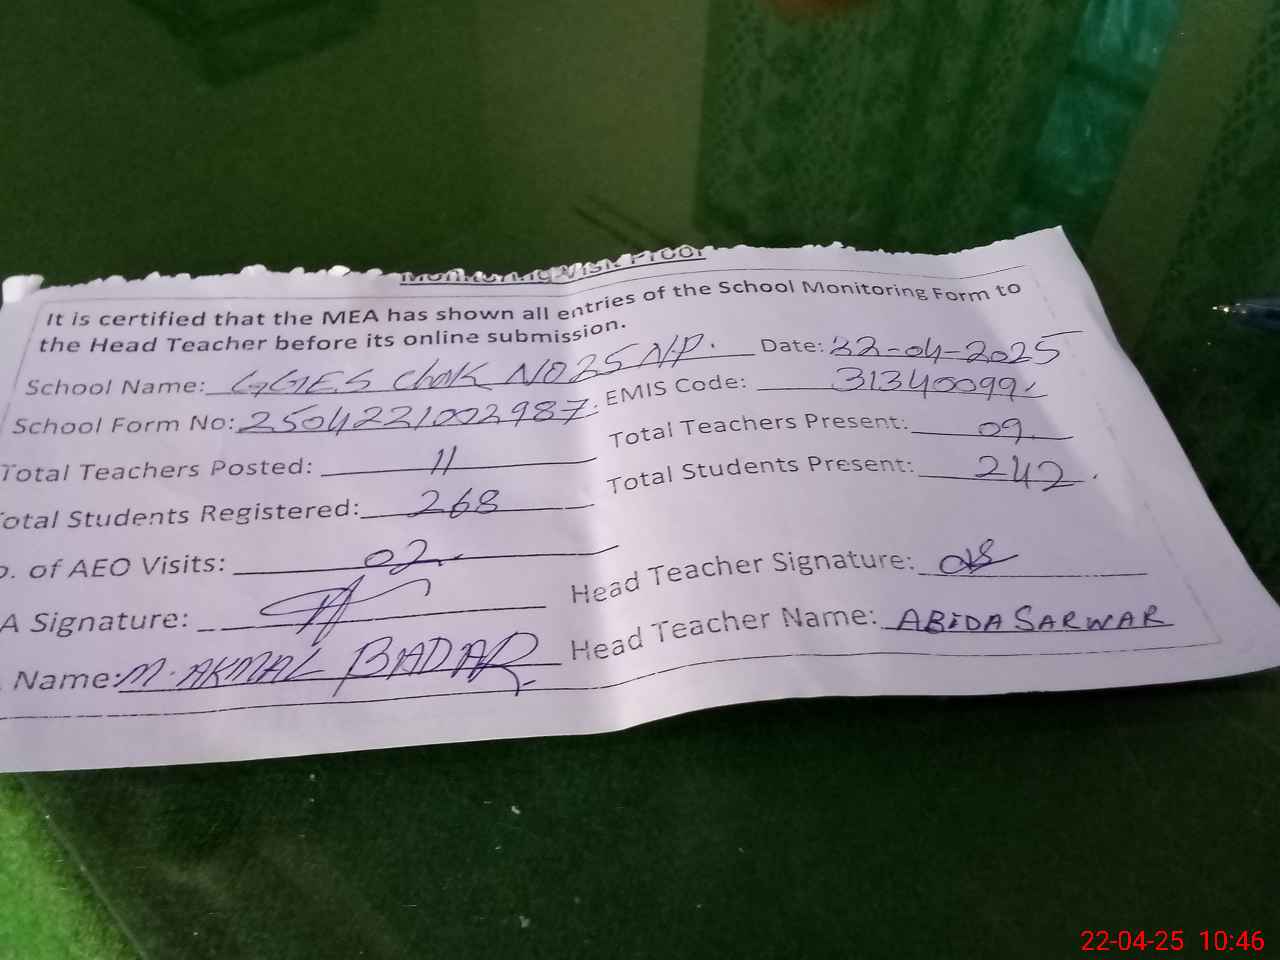 Monitoring Visit Proof
It is certified that the MEA has shown all entries of the School Monitoring Form to
the Head Teacher before its online submission.
School Name: GGES Chak NO 25 NP. Date: 22-04-2025
School Form No: 2504221002987. EMIS Code: 31340099
Total Teachers Posted: 11 Total Teachers Present: 09
Total Students Registered: 268 Total Students Present: 242
o. of AEO Visits: 02
A Signature: Head Teacher Signature:
Name: M. AKMAL BADAR Head Teacher Name: ABIDA SARWAR
22-04-25 10:46